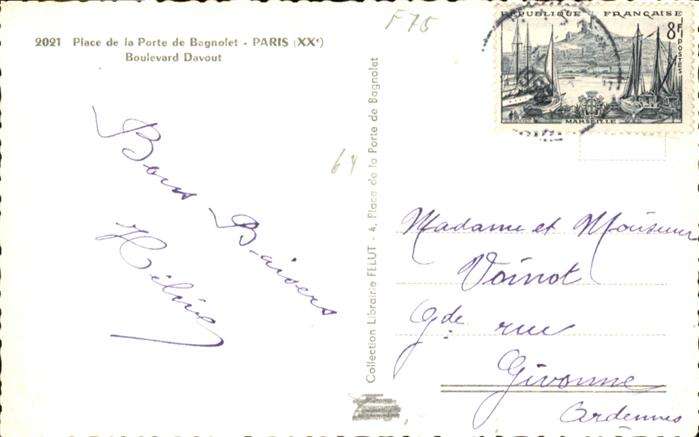 2021 Place de la Porte de Bagnolet - PARIS (XXe)
Boulevard Davout
F75
64
Bons Baisers
Hélène
Collection Librairie FELUT - 4, Place de la Porte de Bagnolet
REPUBLIQUE FRANÇAISE
8F
POSTES
MARSEILLE
Madame et Monsieur
Voinot
Gde rue
Givonne
Ardennes